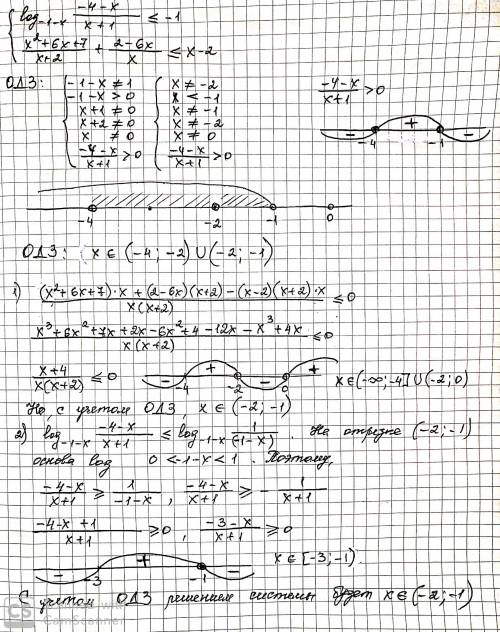 log_{-1-x} \frac{-4-x}{x+1} ≤ -1
\frac{x²+6x+7}{x+2} + \frac{2-6x}{x} ≤ x-2
ОДЗ: { -1-x ≠ 1 { x ≠ -2
-1-x > 0 x < -1
x+1 ≠ 0 x ≠ -1
x+2 ≠ 0 x ≠ -2
x ≠ 0 x ≠ 0
\frac{-4-x}{x+1} > 0 \frac{-4-x}{x+1} > 0
\frac{-4-x}{x+1} > 0
- + -
-4 -1
-4 -2 -1 0
ОДЗ: x ∈ (-4; -2) ∪ (-2; -1)
1) \frac{(x²+6x+7)·x + (2-6x)(x+2) - (x-2)(x+2)·x}{x(x+2)} ≤ 0
\frac{x³+6x²+7x+2x-6x²+4-12x-x³+4x}{x(x+2)} ≤ 0
\frac{x+4}{x(x+2)} ≤ 0 - + - + -4 -2 0 x ∈ (-∞; -4] ∪ (-2; 0)
Но, с учетом ОДЗ, x ∈ (-2; -1)
2) log_{-1-x} \frac{-4-x}{x+1} ≤ log_{-1-x} \frac{1}{(-1-x)} На отрезке (-2; -1)
основа log 0 < -1-x < 1. Поэтому,
\frac{-4-x}{x+1} ≥ \frac{1}{-1-x}, \frac{-4-x}{x+1} ≥ -\frac{1}{x+1}
\frac{-4-x+1}{x+1} ≥ 0, \frac{-3-x}{x+1} ≥ 0
- + - -3 -1 x ∈ [-3; -1).
С учетом ОДЗ решением системы будет x ∈ (-2; -1)
CS CamScanner